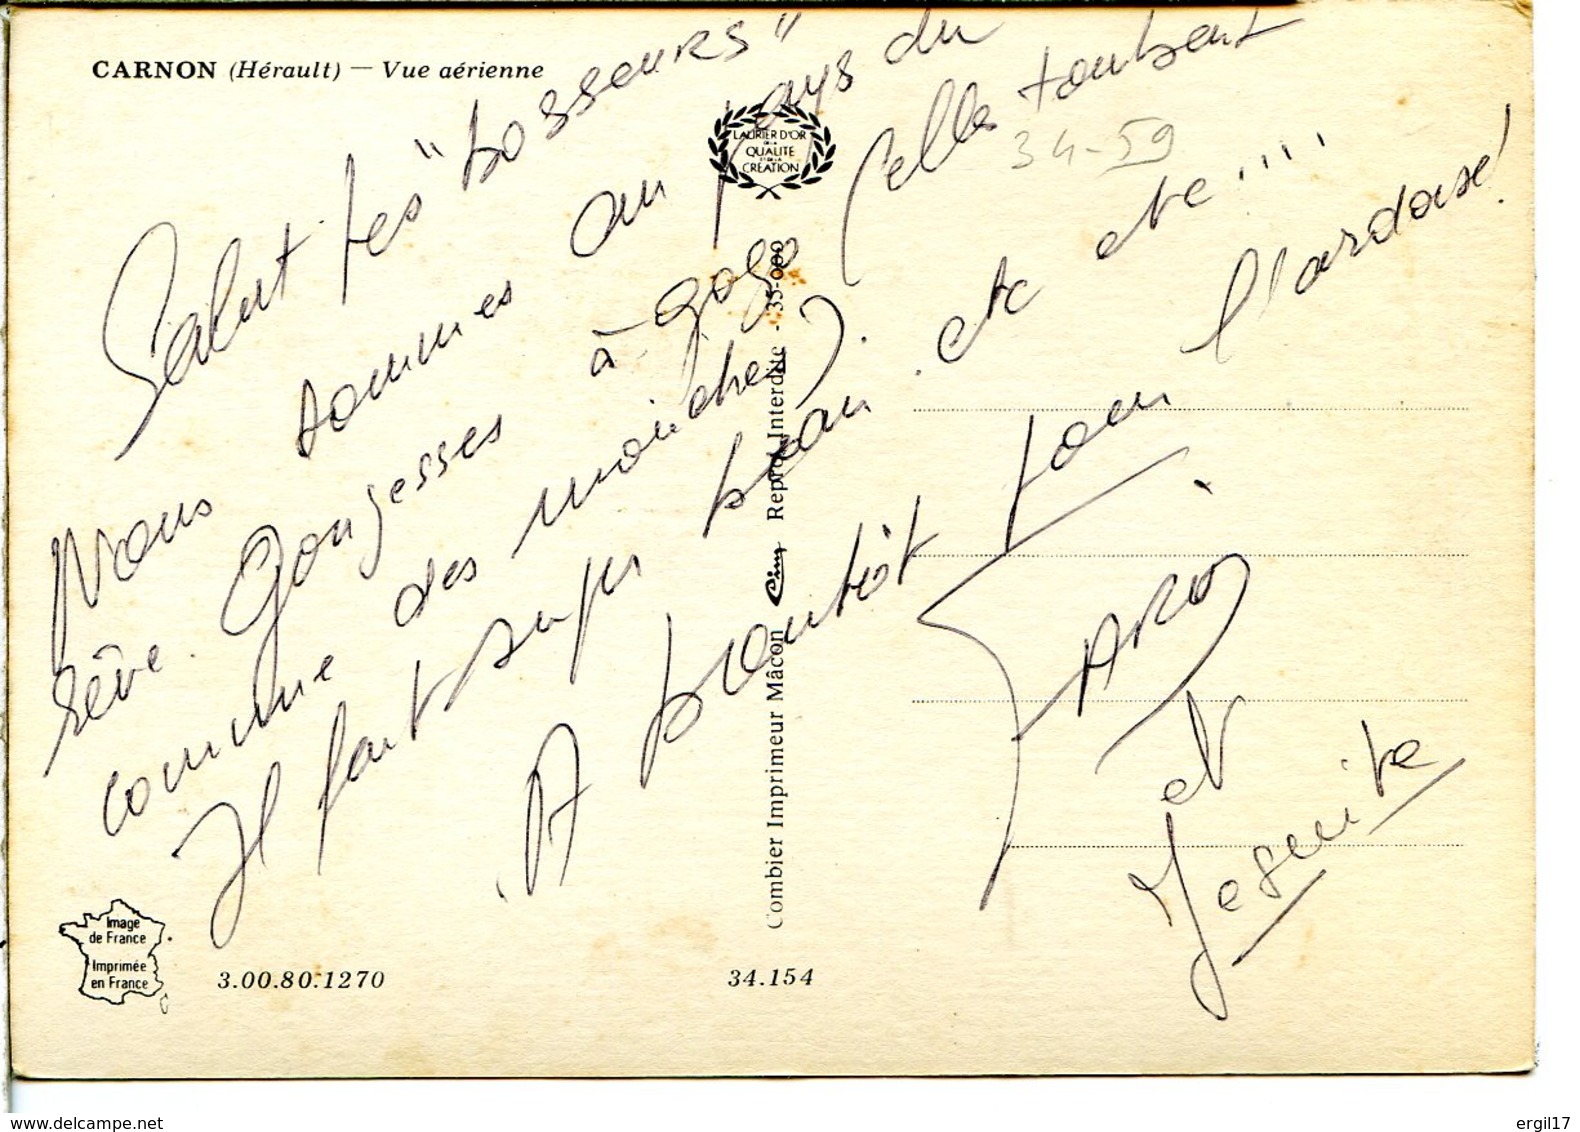 CARNON (Hérault) — Vue aérienne
Salut les "bosseurs"
Nous sommes au pays du
rêve. Gonzesses à gogo (elles tombent
comme des mouches).
Il fait super beau. etc etc ....
A bientôt pour l'ardoise!
JARO
et
Jesuite
LAURIER D'OR
DE LA
QUALITE
ET DE LA
CREATION
34-59
Combier Imprimeur Mâcon Cim Reprod. Interdite - 35-000
Image
de France
Imprimée
en France
3.00.80.1270
34.154
www.delcampe.net
ergil17